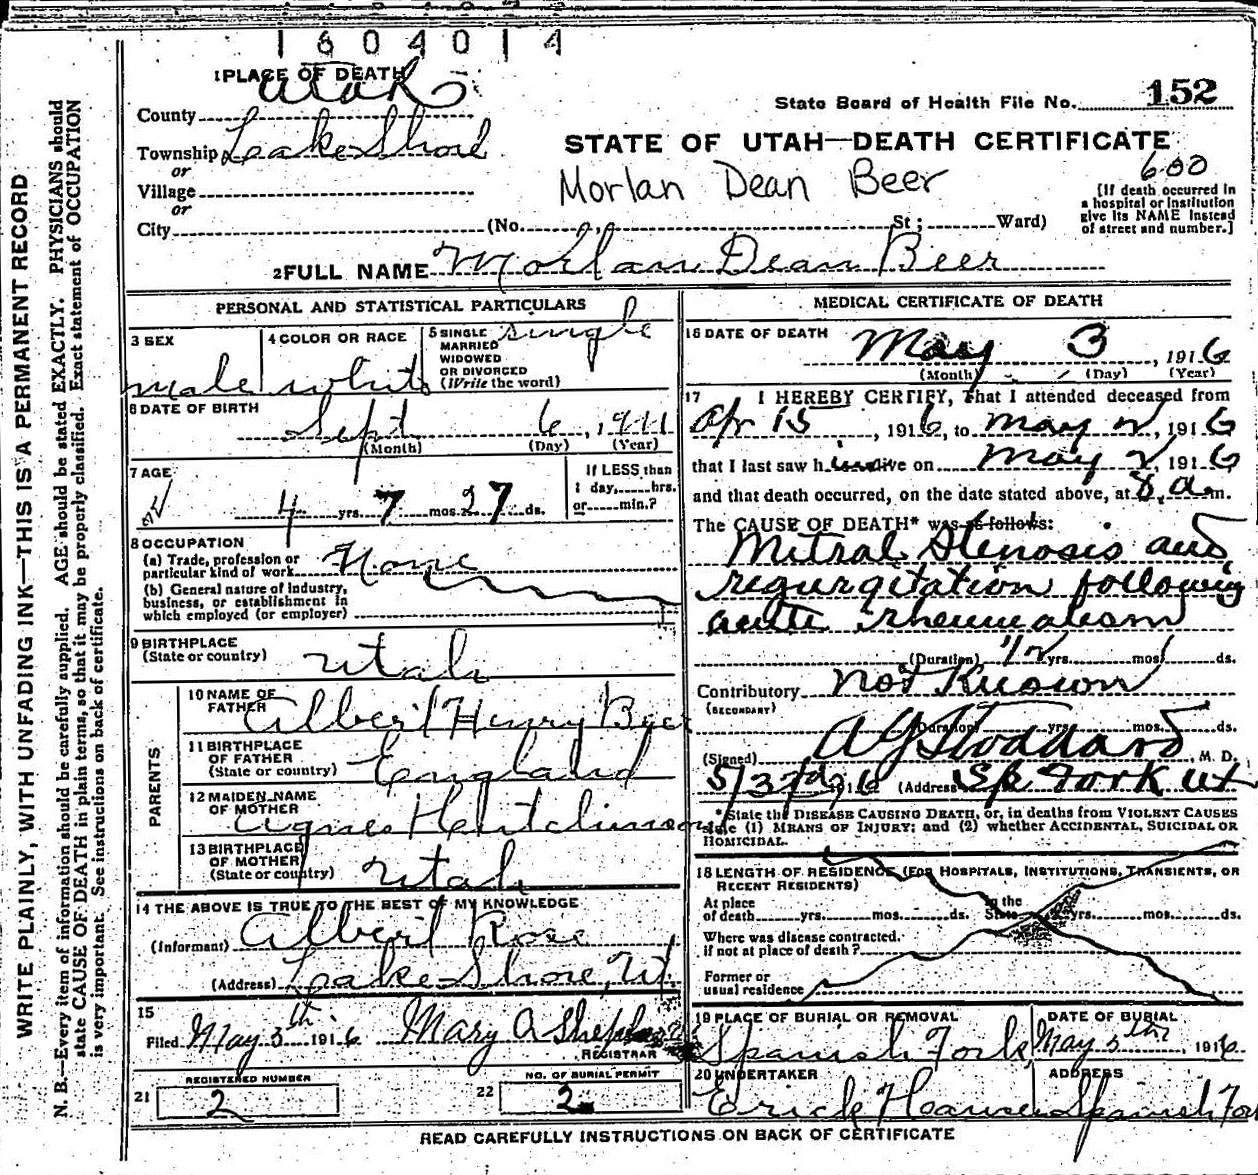 1 6 0 4 0 1 4
1 PLACE OF DEATH
Utah
State Board of Health File No. 152
County
Township Lake Shore
STATE OF UTAH—DEATH CERTIFICATE
or
Village
Morlan Dean Beer
600
[If death occurred in
a hospital or institution
give its NAME instead
of street and number.]
or
City (No. St; Ward)
2 FULL NAME Morlan Dean Beer
PERSONAL AND STATISTICAL PARTICULARS
3 SEX
male
4 COLOR OR RACE
white
5 SINGLE
MARRIED
WIDOWED
OR DIVORCED
(Write the word)
single
6 DATE OF BIRTH
Sept 6, 1911
(Month) (Day) (Year)
7 AGE
4 yrs. 7 mos. 27 ds.
If LESS than
1 day, hrs.
or min.?
8 OCCUPATION
(a) Trade, profession or
particular kind of work None
(b) General nature of industry,
business, or establishment in
which employed (or employer)
9 BIRTHPLACE
(State or country) Utah
PARENTS
10 NAME OF
FATHER Albert Henry Beer
11 BIRTHPLACE
OF FATHER
(State or country) England
12 MAIDEN NAME
OF MOTHER
Agnes Hutchinson
13 BIRTHPLACE
OF MOTHER
(State or country) Utah
14 THE ABOVE IS TRUE TO THE BEST OF MY KNOWLEDGE
(Informant) Albert Rose
(Address) Lake Shore, Ut.
15
Filed May 5th 1916 Mary A
REGISTRAR
REGISTERED NUMBER
21 2
NO. OF BURIAL PERMIT
22 2
MEDICAL CERTIFICATE OF DEATH
16 DATE OF DEATH
May 3, 1916
(Month) (Day) (Year)
17 I HEREBY CERTIFY, That I attended deceased from
Apr 15, 1916, to May 2, 1916
that I last saw him alive on May 2, 1916
and that death occurred, on the date stated above, at 8 a.m.
The CAUSE OF DEATH* was as follows:
Mitral Stenosis and
regurgitation following
acute rheumatism
(Duration) 1/2 yrs. mos. ds.
Contributory Not Known
(SECONDARY)
(Duration) yrs. mos. ds.
(Signed) A Y Stoddard, M. D.
5/3rd 1916 (Address Sp. Fork Ut
*State the DISEASE CAUSING DEATH, or, in deaths from VIOLENT CAUSES
state (1) MEANS OF INJURY; and (2) whether ACCIDENTAL, SUICIDAL OR
HOMICIDAL.
18 LENGTH OF RESIDENCE (FOR HOSPITALS, INSTITUTIONS, TRANSIENTS, OR
RECENT RESIDENTS)
At place
of death yrs. mos. ds.
In the
State yrs. mos. ds.
Where was disease contracted.
if not at place of death?
Former or
usual residence
19 PLACE OF BURIAL OR REMOVAL
Spanish Fork
DATE OF BURIAL
May 5th, 1916
20 UNDERTAKER
Erick Hansen
ADDRESS
Spanish For
READ CAREFULLY INSTRUCTIONS ON BACK OF CERTIFICATE
WRITE PLAINLY, WITH UNFADING INK—THIS IS A PERMANENT RECORD
N. B.—Every item of information should be carefully supplied. AGE should be stated EXACTLY. PHYSICIANS should
state CAUSE OF DEATH in plain terms, so that it may be properly classified. Exact statement of OCCUPATION
is very important. See instructions on back of certificate.